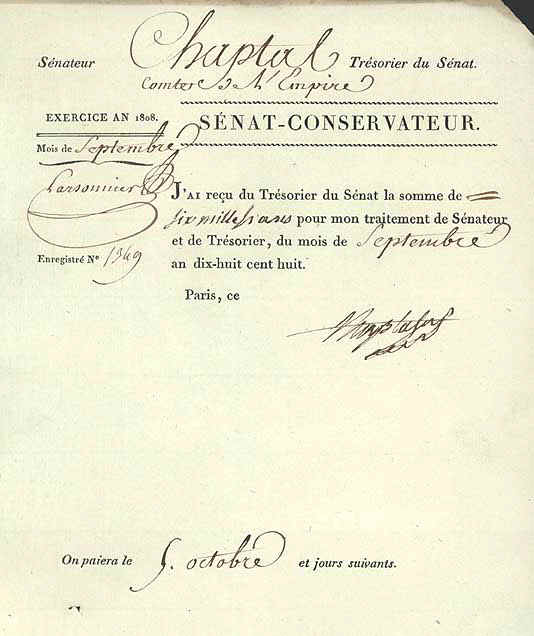 Sénateur Chaptal Trésorier du Sénat.
Comte de l'Empire
EXERCICE AN 1808.
SÉNAT-CONSERVATEUR.
Mois de Septembre
J'AI reçu du Trésorier du Sénat la somme de
six mille francs pour mon traitement de Sénateur
et de Trésorier, du mois de Septembre
an dix-huit cent huit.
Enregistré N° 1349
Paris, ce
On paiera le 5. octobre et jours suivants.